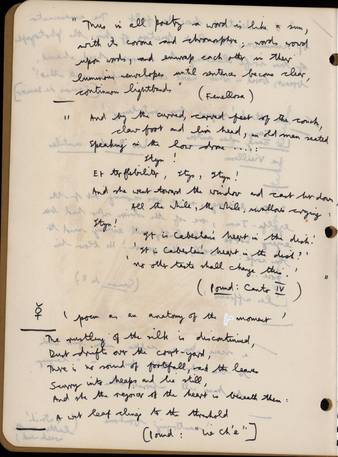 " Thus in all poetry a word is like a sun,
with its corona and chromosphere; words crowd
upon words, and enwrap each other in their
luminous envelopes until sentences become clear,
continuous lightbands " (Fenellosa)
" And by the curved, carved foot of the couch,
claw foot and lion head, an old man seated
Speaking in the low drone ....:
Ityn!
Et ter flebiliter, Ityn, Ityn!
And she went toward the window and cast her down
All the while, the while, swallows crying:
Ityn!
'It is Cabestan's heart in the dish.'
'It is Cabestan's heart in the dish?'
'No other taste shall change this.' "
(Pound: Canto IV)
' poem as an anatomy of the moment '
The rustling of the silk is discontinued,
Dust drifts over the court-yard,
There is no sound of footfall, and the leaves
Scurry into heaps and lie still,
And she the rejoicer of the heart is beneath them:
A wet leaf clings to the threshold
[Pound: "Liu Ch'e"]